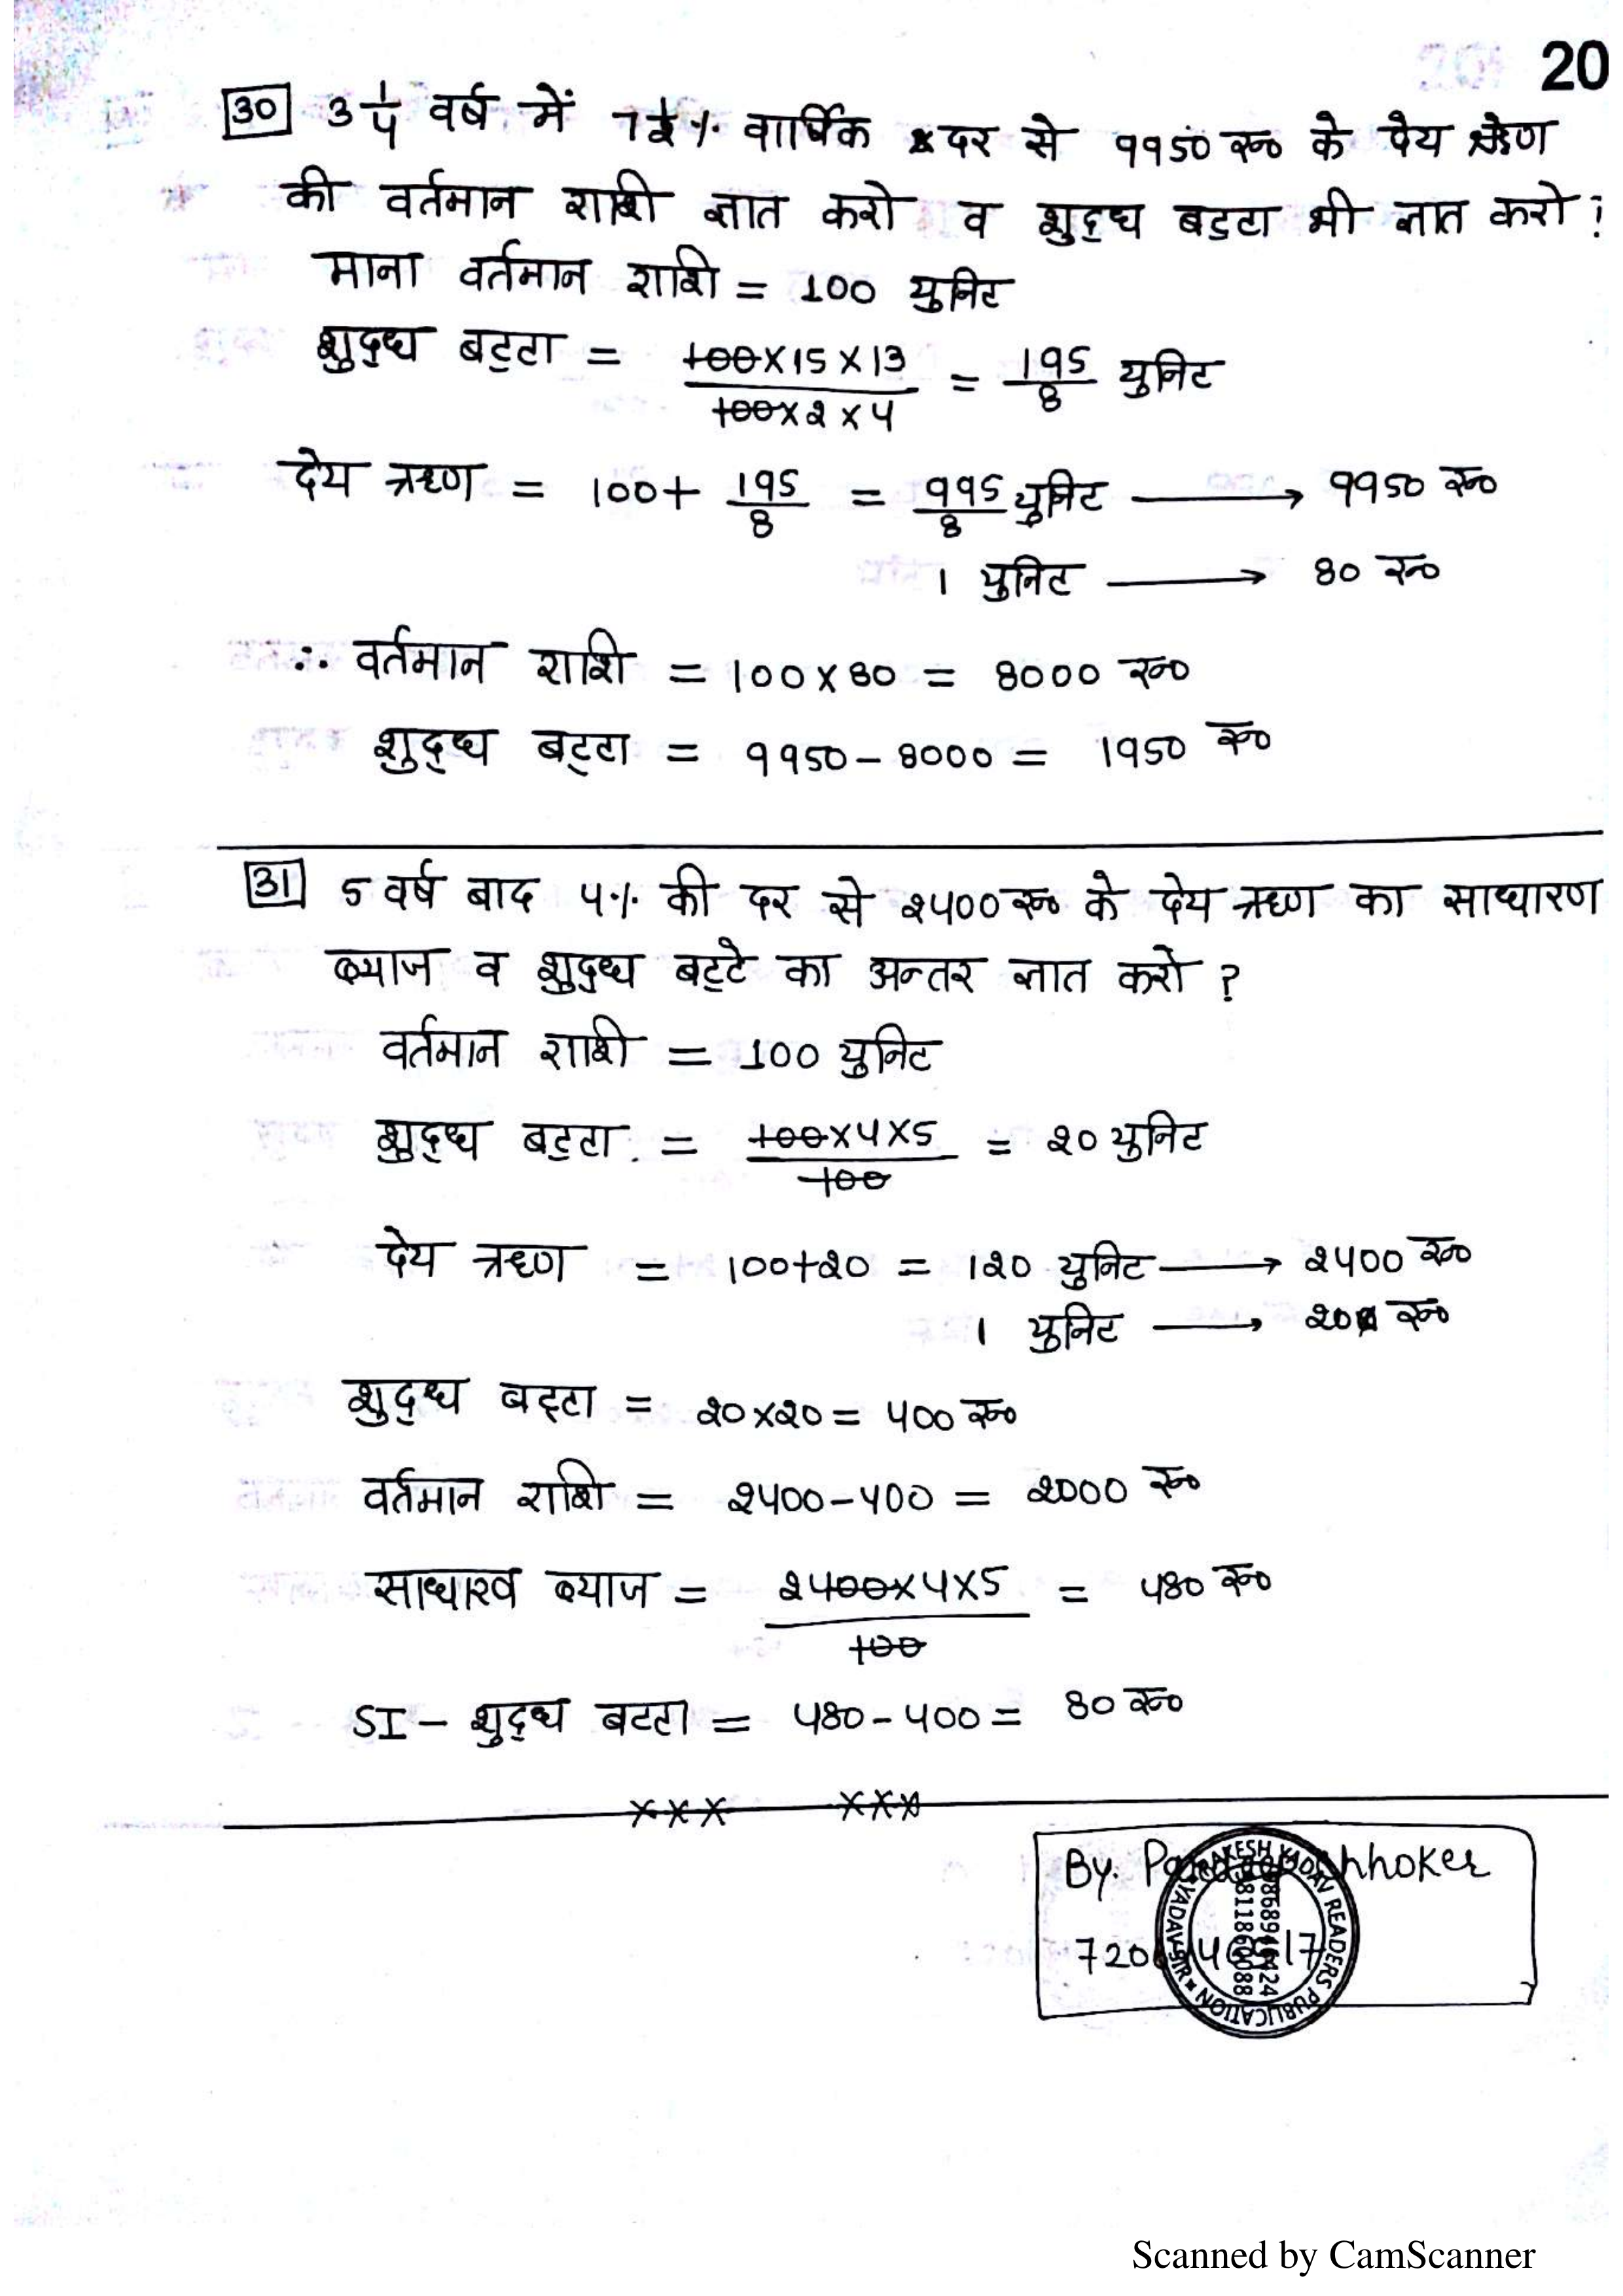 20
30 3 1/4 वर्ष में 7 1/2 % वार्षिक दर से 9950 रू० के देय ऋण
की वर्तमान राशी ज्ञात करो व शुद्ध बट्टा भी ज्ञात करो ?
माना वर्तमान राशि = 100 युनिट
शुद्ध बट्टा = 100×15×13 / 100×2×4 = 195/8 युनिट
देय ऋण = 100+ 195/8 = 995/8 युनिट ⟶ 9950 रू०
1 युनिट ⟶ 80 रू०
∴ वर्तमान राशि = 100×80 = 8000 रू०
शुद्ध बट्टा = 9950-8000 = 1950 रू०
31 5 वर्ष बाद 4% की दर से 2400 रू० के देय ऋण का साधारण
ब्याज व शुद्ध बट्टे का अन्तर ज्ञात करो ?
वर्तमान राशी = 100 युनिट
शुद्ध बट्टा = 100×4×5 / 100 = 20 युनिट
देय ऋण = 100+20 = 120 युनिट ⟶ 2400 रू०
1 युनिट ⟶ 20 रू०
शुद्ध बट्टा = 20×20 = 400 रू०
वर्तमान राशि = 2400-400 = 2000 रू०
साधारव ब्याज = 2400×4×5 / 100 = 480 रू०
SI - शुद्ध बटटा = 480-400 = 80 रू०
××× ×××
By:
YADAV READERS PUBLICATION
Scanned by CamScanner